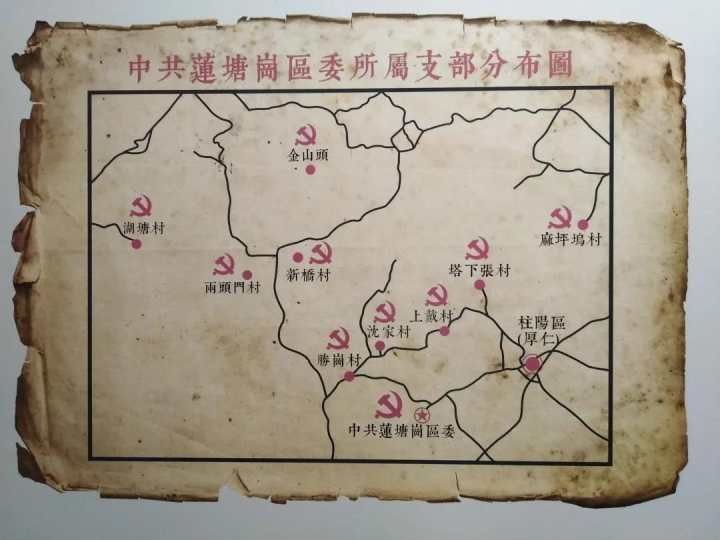 中共蓮塘崗區委所屬支部分布圖
金山頭
湖塘村
麻坪塢村
兩頭門村
新橋村
塔下張村
上戴村
沈家村
柱陽區
(厚仁)
勝崗村
中共蓮塘崗區委